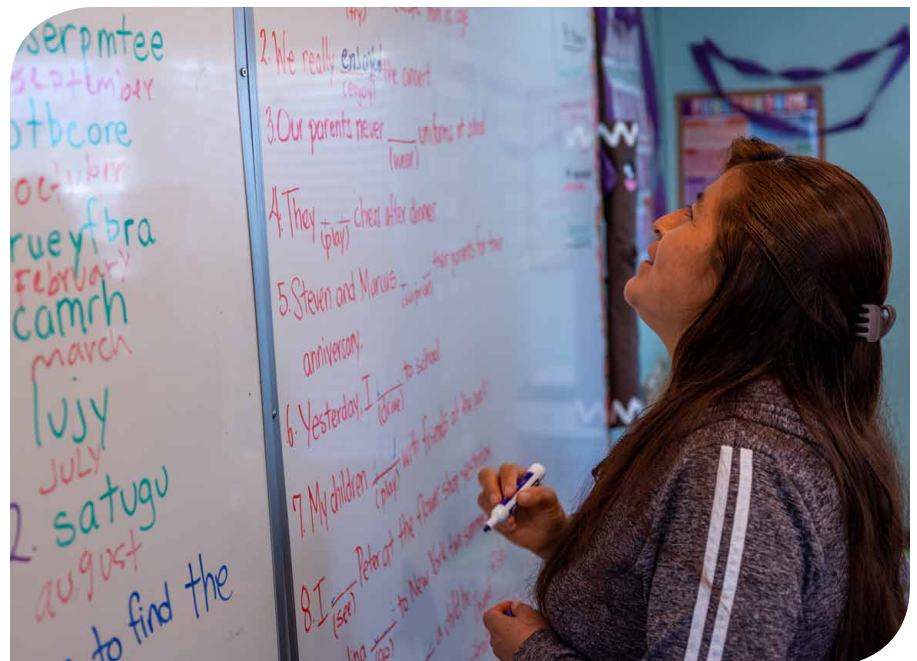 serpmtee
september
otbcore
october
rueyfbra
February
camrh
march
lujy
JULY
2. satugu
august
to find the
(try)
2. We really the concert
(enjoy)
3. Our parents never ___ uniforms at school
(wear)
4. They ___ chess after dinner
(play)
5. Steven and Marcus ___ their parents for their
(surprise)
anniversary.
6. Yesterday, I ___ to school
(drive)
7. My children ___ with friends at the park
(play)
8. I ___ Peter at the flower shop yesterday
(see)
to New York two
(go)